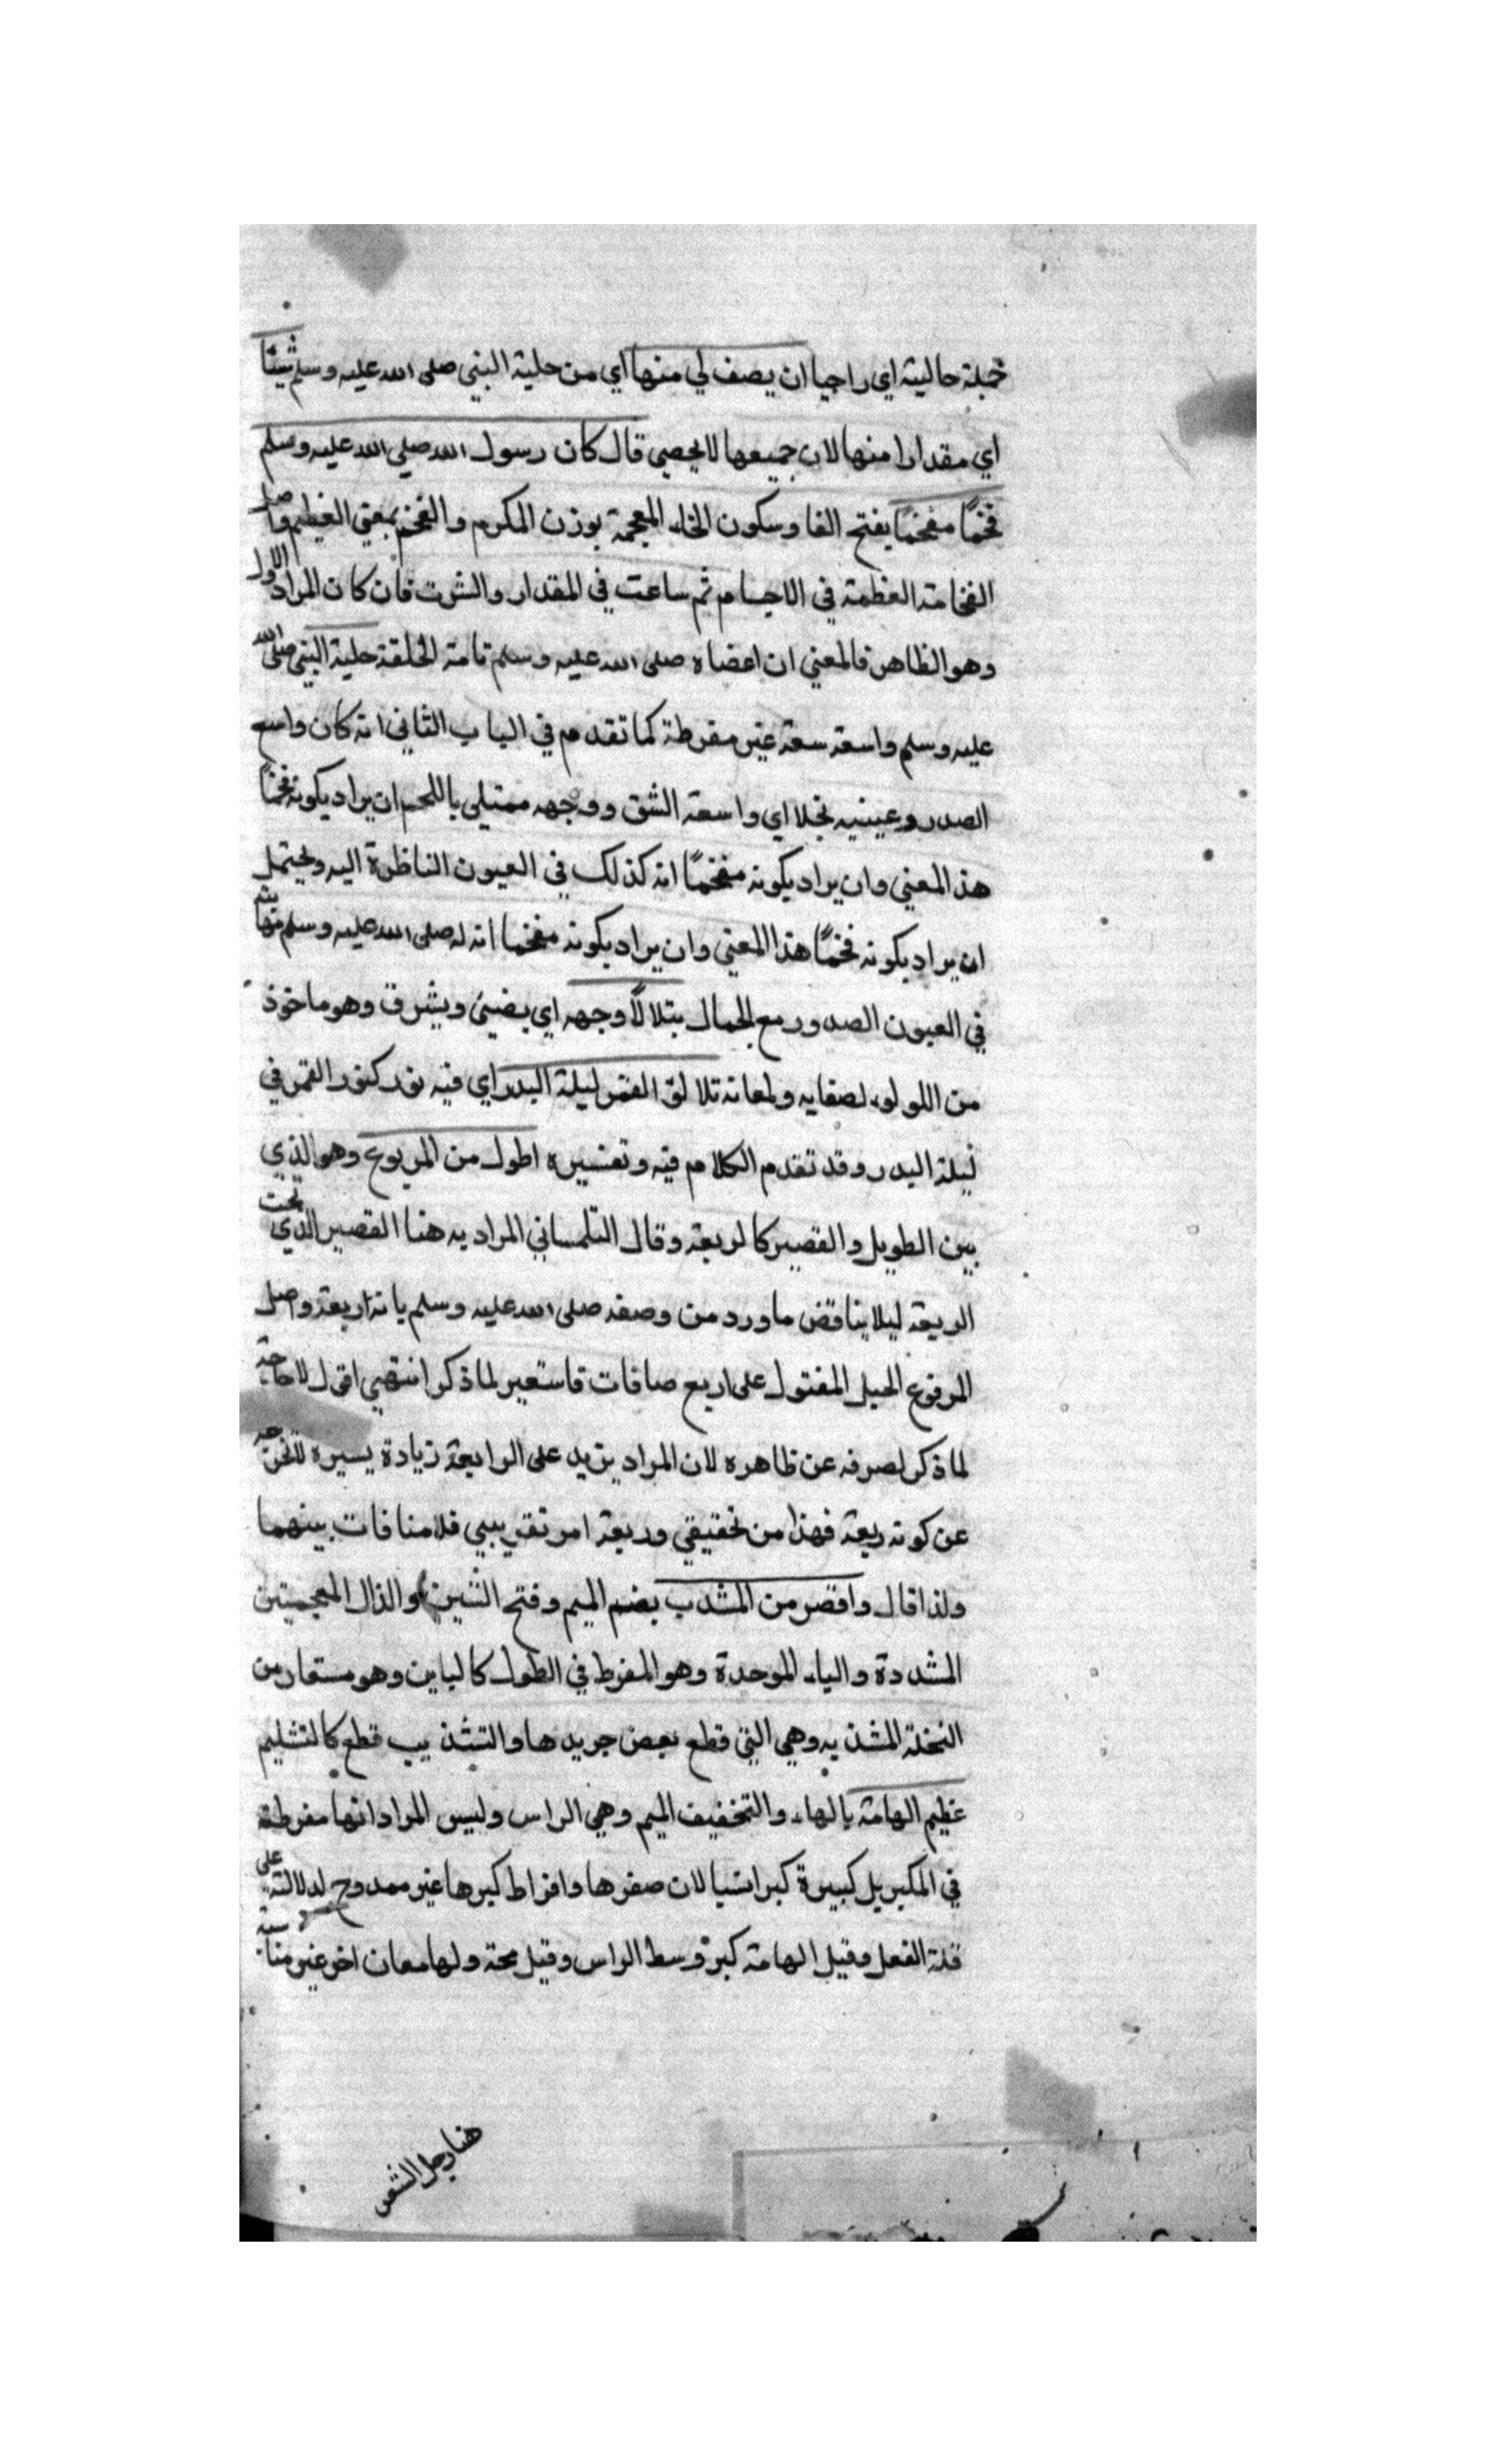 جملة حالية اي راجيا ان يصف لي منها اي من حلية النبي صلى الله عليه وسلم شيئا
اي مقدارا منها لان جميعها لا يحصي قال كان رسول الله صلي الله عليه وسلم
فخمًا مفخمًا بفتح الفا وسكون الخاء المعجمة بوزن المكرم والفخم بمعني العظيم واصل
الفخامة العظمة في الاجسام ثم ساعت في المقدار والشرف فان كان المراد الاول
وهو الظاهر فالمعني ان اعضاه صلى الله عليه وسلم تامة الخلقة حلية النبي صلى الله
عليه وسلم واسعة سعة غير مفرطة كما تقدم في الباب الثاني انه كان واسع
الصدر وعينيه نجلا اي واسعة الشق ووجهه ممتلي باللحم ان يراد بكونه فخمًا
هذا المعني وان يراد بكونه مفخمًا انه كذلك في العيون الناظرة اليه ويحتمل
ان يراد بكونه فخمًا هذا المعني وان يراد بكونه مفخما انه له صلى الله عليه وسلم
في العيون الصدور مع الجمال يتلالأ وجهه اي يضيئ ويشرق وهو ماخوذ
من اللولوء لصفايه ولمعانه تلالؤ القمر ليلة البدر اي فيه نور كنور القمر في
ليلة البدر وقد تقدم الكلام فيه وتفسيره اطول من المربوع وهو الذي
بين الطويل والقصير كالربعة وقال التلمساني المراد به هنا القصير الذي تحت
الربعة ليلا يناقض ما ورد من وصفه صلى الله عليه وسلم بانه اربعة واصل
المرفوع الحبل المفتول على اربع صافات فاستعير لما ذكر انتهي اقول لا حاجة
لما ذكر لصرفه عن ظاهره لان المراد يزيد على الرابعة زيادة يسيره لا تخرجه
عن كونه ربعة فهذا من تحقيقي وربعة امر تقريبي فلا منافات بينهما
ولذا قال واقصر من المشدب بضم الميم وفتح الشين والذال المعجمتين
المشددة والباء الموحدة وهو المفرط في الطول كالباين وهو مستعار من
النخلة المشذبه وهي التي قطع بعض جريدها والتشذيب قطع كالتشليم
عظيم الهامة بالهاء والتخفيف الميم وهي الراس وليس المراد انها مفرطة
في المكبر بل كبيرة كبرا نسيا لان صغرها وافراط كبرها غير ممدوح لدلالته على
قلة الفعل وقيل الهامة كبر وسط الراس وقيل محة ولها معان اخر غير مناسبة
هنا رجل الشعر